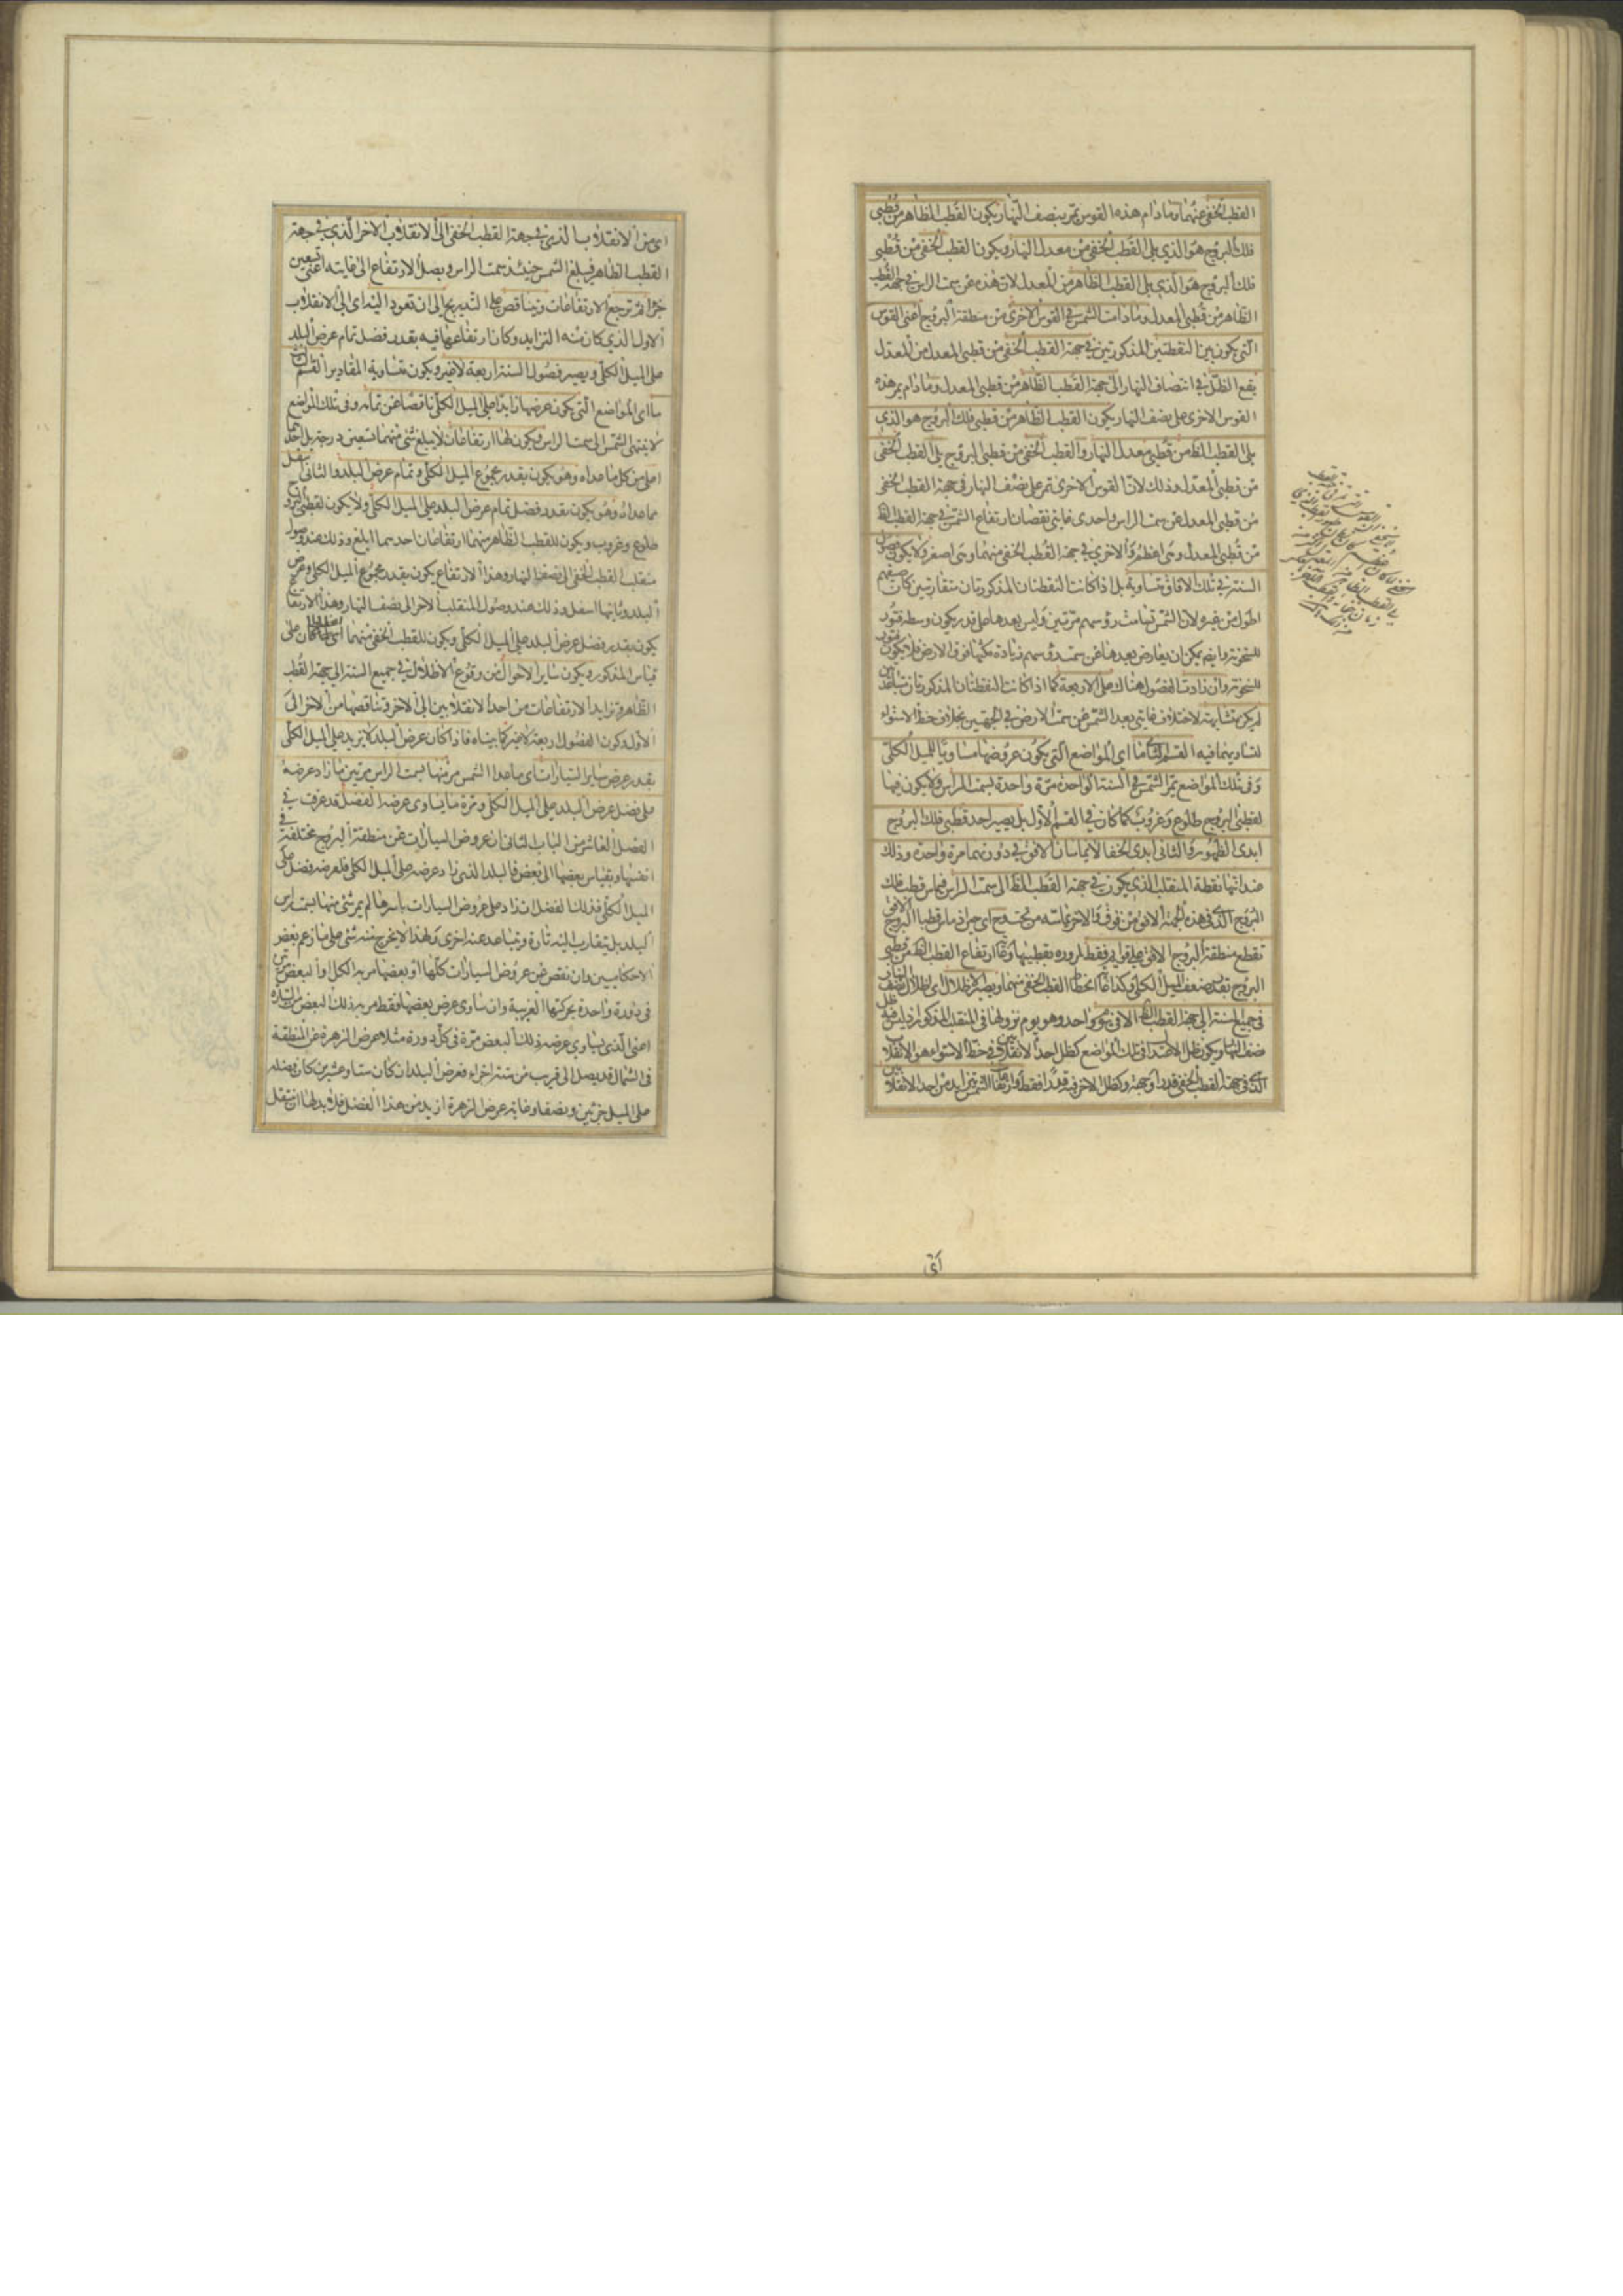 القطب الخفى عنهما وما دام هذه القوس تمر بنصف النهار يكون القطب الظاهر من قطبى
فلك البروج هو الذى يلى القطب الخفى من معدل النهار ويكون القطب الخفى من قطبى
فلك البروج هو الذى يلى القطب الظاهر من المعدل لان هذه عن سمت الراس فى جهة القطب
الظاهر من قطبى المعدل وما دامت الشمس فى القوس الاخرى من منطقة البروج اعنى القوس
التى يكون بين النقطتين المذكورتين فى جهة القطب الخفى من قطبى المعدل من المعدل
يقع الظل فى انتصاف النهار الى جهة القطب الظاهر من قطبى المعدل وما دام يمر هذه
القوس الاخرى على نصف النهار يكون القطب الظاهر من قطبى فلك البروج هو الذى
يلى القطب الظ من قطبى معدل النهار والقطب الخفى من قطبى البروج يلى القطب الخفى
من قطبى المعدل وذلك لان القوس الاخرى تمر على نصف النهار فى جهة القطب الخفى
من قطبى المعدل عن سمت الراس واحدى غايتى نقصان ارتفاع الشمس فى جهة القطب الظ
من قطبى المعدل وهى اعظم والاخرى فى جهة القطب الخفى منهما وهى اصغر ولا يكون فصول
السنة فى تلك الافاق متساوية بل اذا كانت النقطتان المذكورتان متقاربتين كان صيفهم
اطول من غيره لان الشمس تسامت رؤسهم مرتين وليس بعدها على قدر يكون وسطه فتور
للسخونة وايضا يمكن ان يعارض بعدها عن سمت رؤسهم زيادة مكثها فوق الارض فلا يكون فتور
للسخونة وان زادت الفصول هناك على الاربعة كما اذا كانت النقطتان المذكورتان متباعدتين
لم يكن متشابهة لاختلاف غايتى بعد الشمس عن سمت الارض فى الجهتين بخلاف خط الاستواء
لتساويهما فيه القسم الثالث اى المواضع التى يكون عروضها مساويا للميل الكلى
وفى تلك المواضع تمر الشمس فى السنة الواحدة مرة واحدة بسمت الراس ولا يكون فيها
لقطبى البروج طلوع وغروب كما كان فى القسم الاول بل يصير احد قطبى فلك البروج
ابدى الظهور والثانى ابدى الخفا الا يماسان الافق فى دورتهما مرة واحدة وذلك
عند انتهاء نقطة المنقلب الذى يكون فى جهة القطب الظ الى سمت الراس فيماس قطب فلك
البروج الذى فى هذه الجهة الافق من فوق والاخر يماسه من تحت وح اى حين اذ ماس قطبا البروج الافق
تقطع منطقة البروج الافق على قوايم فقط لمروره بقطبيها وغاية ارتفاع القطب الظ من قطبى
البروج بقدر ضعف الميل الكلى وكذا غاية انحطاط القطب الخفى منهما ويصير الاظلال اى اظلال نصف النهار
فى جميع السنة الى جهة القطب الظ الا فى يوم واحد وهو يوم نزولها فى المنقلب المذكور اذ ليس فيه ظل
نصف النهار ويكون ظل الاعتدال فى تلك المواضع كظل احد الانقلابين فى خط الاستواء هو الانقلاب
الذى فى جهة القطب الخفى قدرا وجهة وكظل الاخر فيه قدرا فقط وارتفاعات الشمس تتزايد من احد الانقلابين
اى
اى من الانقلاب الذى فى جهة القطب الخفى الى الانقلاب الاخر الذى فى جهة
القطب الظاهر فيبلغ الشمس حينئذ سمت الراس ويصل الارتفاع الى غايته اعنى تسعين
جزا ثم ترجع الارتفاعات وتتناقص على التدريج الى ان تعود اليه اى الى الانقلاب
الاول الذى كان منه التزايد وكان ارتفاعها فيه بقدر فضل تمام عرض البلد
على الميل الكلى ويصير فصول السنة اربعة لا غير ويكون متساوية المقادير القسم الثالث
ما اى المواضع التى يكون عرضها زايدا على الميل الكلى ناقصا عن تمامه وفى تلك المواضع
لا ينتهى الشمس الى سمت الراس ويكون لها ارتفاعات لا يبلغ شئ منهما تسعين درجة بل احدهما
اعلى من كل ما عداه وهو يكون بقدر مجموع الميل الكلى وتمام عرض البلد والثانى اسفل
مما عداه وهو يكون بقدر فضل تمام عرض البلد على الميل الكلى ولا يكون لقطبى البروج
طلوع وغروب ويكون للقطب الظاهر منهما ارتفاعان احدهما ابلغ وذلك عند وصول
منقلب القطب الخفى الى نصف النهار وهذا الارتفاع يكون بقدر مجموع الميل الكلى وعرض
البلد وثانيهما اسفل وذلك عند وصول المنقلب الاخر الى نصف النهار وهذا الارتفاع
يكون بقدر فضل عرض البلد على الميل الكلى ويكون للقطب الخفى منهما انحطاطان على
قياس المذكور ويكون ساير الاحوال من وقوع الاظلال فى جميع السنة الى جهة القطب
الظاهر وتزايد الارتفاعات من احد الانقلابين الى الاخر وتناقصها من الاخر الى
الاول وكون الفصول اربعة لا غير كما بيناه فاذا كان عرض البلد لا يزيد على الميل الكلى
بقدر عرض ساير السيارات اى ما عدا الشمس مر منها بسمت الراس مرتين ما زاد عرضه
على فضل عرض البلد على الميل الكلى ومرة ما يساوى عرضه الفضل قد عرفت فى
الفصل العاشر من الباب الثانى ان عروض السيارات عن منطقة البروج مختلفة فى
انفسها وبقياس بعضها الى بعض فالبلد الذى زاد عرضه على الميل الكلى فلعرضه فضل على
الميل الكلى فذلك الفضل ان زاد على عروض السيارات باسرها لم يمر شئ منها بسمت راس
البلد بل يتقارب اليه تارة ويتباعد عنه اخرى ولهذا لا يخرج منه شئ على ما زعم بعض
الاحكاميين وان نقص عن عروض السيارات كلها او بعضها مر به الكل او البعض مرتين
فى دورة واحدة بحركتها الغربية وان ساوى عرض بعضها فقط مر به ذلك البعض من السيارة
اعنى الذى يساوى عرضه ذلك البعض مرة فى كل دورة مثلا عرض الزهرة عن المنطقة
فى الشمال قد يصل الى قريب من ستة اجزاء فعرض البلد ان كان ستا وعشرين كان فضله
على الميل جزئين ونصفا وغاية عرض الزهرة ازيد من هذا الفضل فلا بد لها ان تنتقل